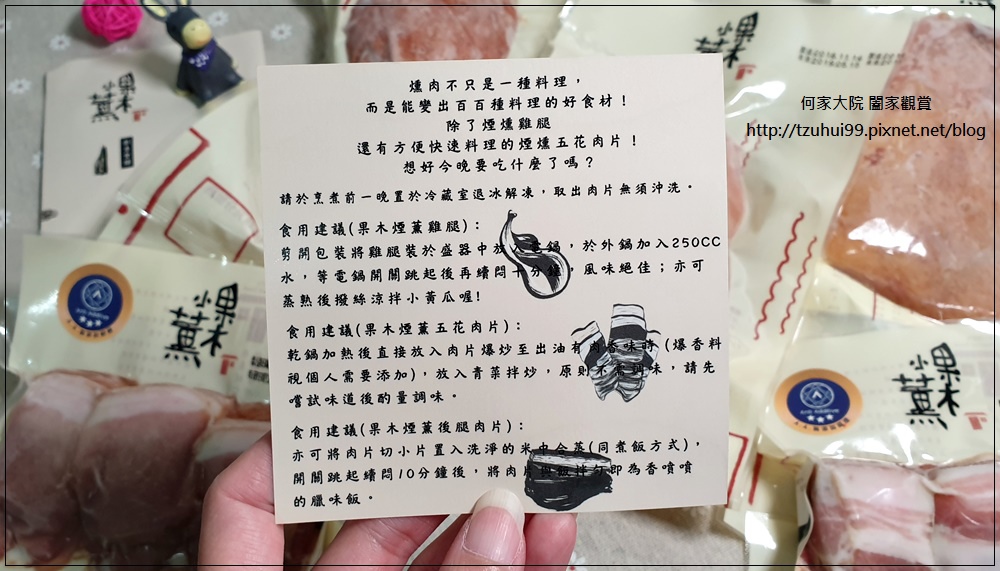 燻肉不只是一種料理，
而是能變出百百種料理的好食材！
除了煙燻雞腿
還有方便快速料理的煙燻五花肉片！
想好今晚要吃什麼了嗎？
請於烹煮前一晚置於冷藏室退冰解凍，取出肉片無須沖洗。
食用建議(果木煙薰雞腿)：
剪開包裝將雞腿裝於盛器中放入電鍋，於外鍋加入250CC
水，等電鍋開關跳起後再續悶十分鐘，風味絕佳；亦可
蒸熟後撥絲涼拌小黃瓜喔！
食用建議(果木煙薰五花肉片)：
乾鍋加熱後直接放入肉片爆炒至出油有肉香味時(爆香料
視個人需要添加)，放入青菜拌炒，原則不需調味，請先
嚐試味道後酌量調味。
食用建議(果木煙薰後腿肉片)：
亦可將肉片切小片置入洗淨的米中合蒸(同煮飯方式)，
開關跳起續悶10分鐘後，將肉片與飯拌勻即為香噴噴
的臘味飯。
何家大院 闔家觀賞
http://tzuhui99.pixnet.net/blog
小果木薰
小果木薰
小果木薰
Anti Additive